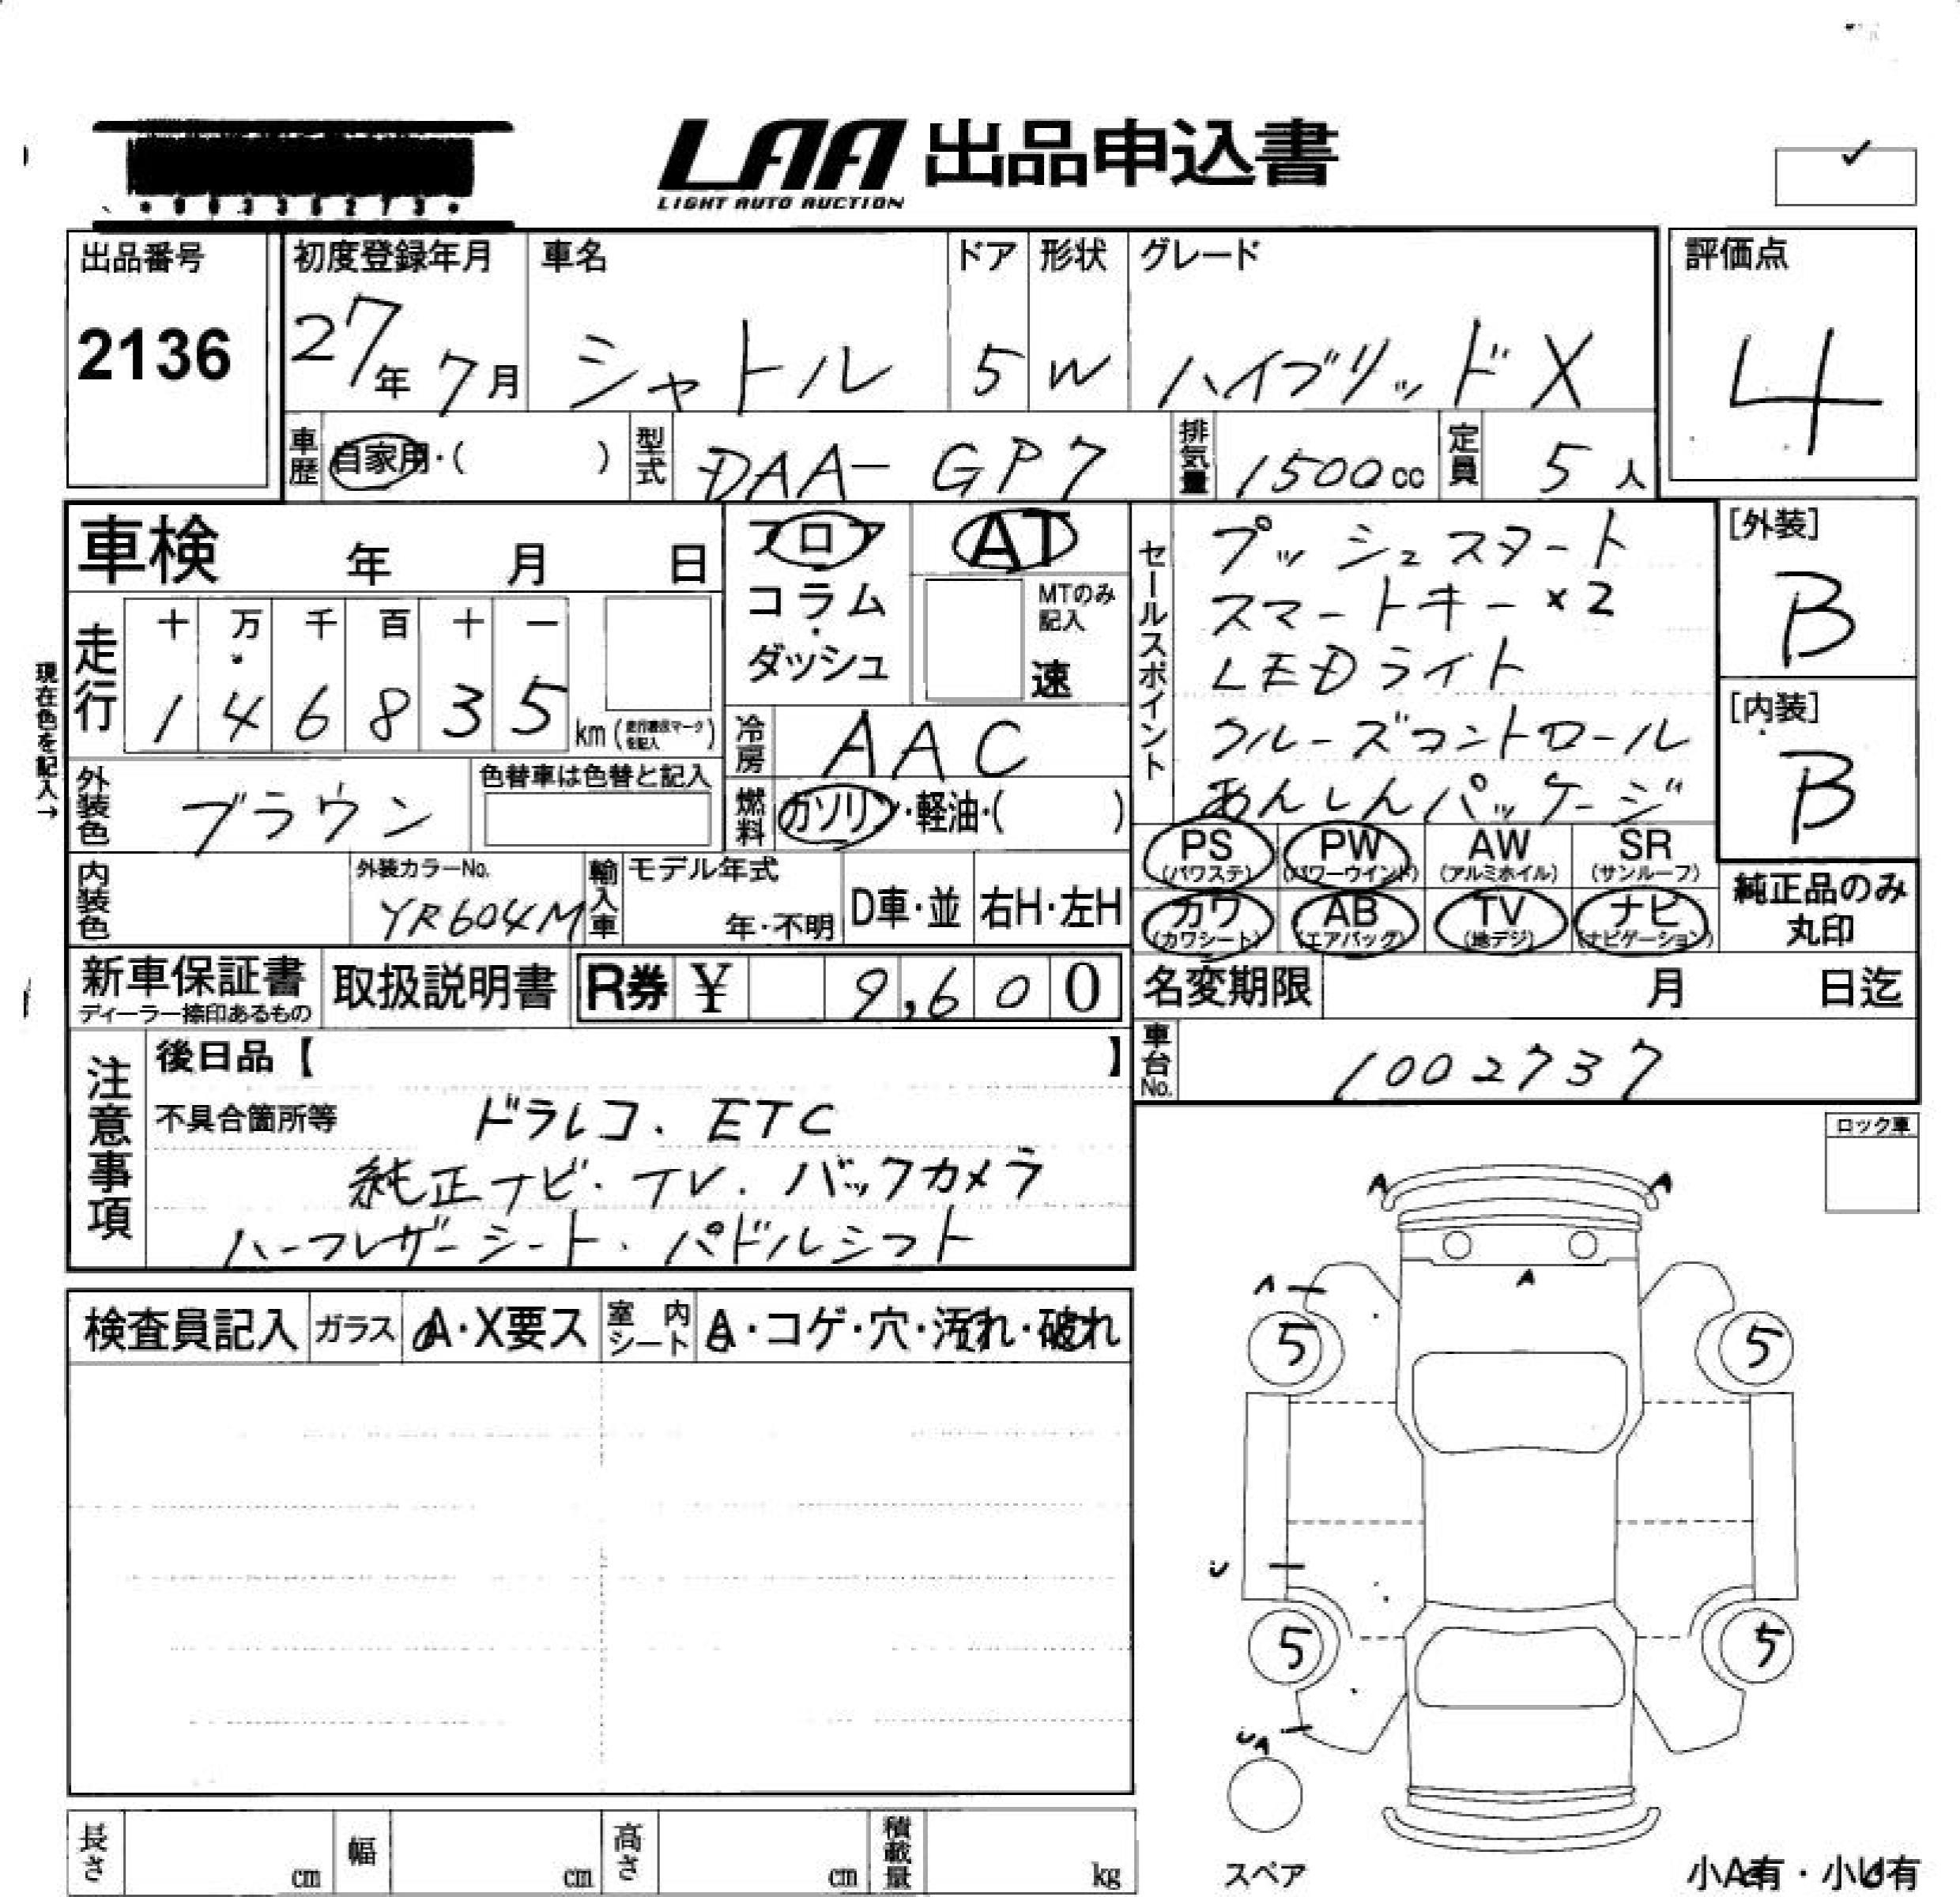 LAA 出品申込書
LIGHT AUTO AUCTION
出品番号 初度登録年月 車名 ドア 形状 グレード 評価点
2136 27年 7月 シャトル 5 W ハイブリッド X 4
車歴 自家用・( ) 型式 DAA- GP7 排気量 1500cc 定員 5人
車検 年 月 日
フロア AT
コラム・ MTのみ記入
ダッシュ 速
現在色を記入→
走行 十 万 千 百 十 一
1 4 6 8 3 5 km
冷房 AAC
燃料 ガソリン・軽油・( )
外装色 ブラウン 色替車は色替と記入
内装色 外装カラーNo. YR604M 輸入車 モデル年式 年・不明 D車・並 右H・左H
セールスポイント
プッシュスタート
スマートキー×2
LEDライト
クルーズコントロール
あんしんパッケージ
[外装]
B
[内装]
B
PS (パワステ) PW (パワーウインド) AW (アルミホイル) SR (サンルーフ)
カワ (カワシート) AB (エアバッグ) TV (地デジ) ナビ (ナビゲーション)
純正品のみ
丸印
新車保証書 取扱説明書 R券 ¥ 9,600
ディーラー捺印あるもの
名変期限 月 日迄
車台No. 1002737
注意事項
後日品【 】
不具合箇所等 ドラレコ、ETC
純正ナビ・TV.バックカメラ
ハーフレザーシート、パドルシフト
ロック車
検査員記入 ガラス A・X要ス 室内シート A・コゲ・穴・汚れ・破れ
A A
A
A
5 5
U
5 5
UA
スペア
小A有・小U有
長さ cm 幅 cm 高さ cm 積載量 kg